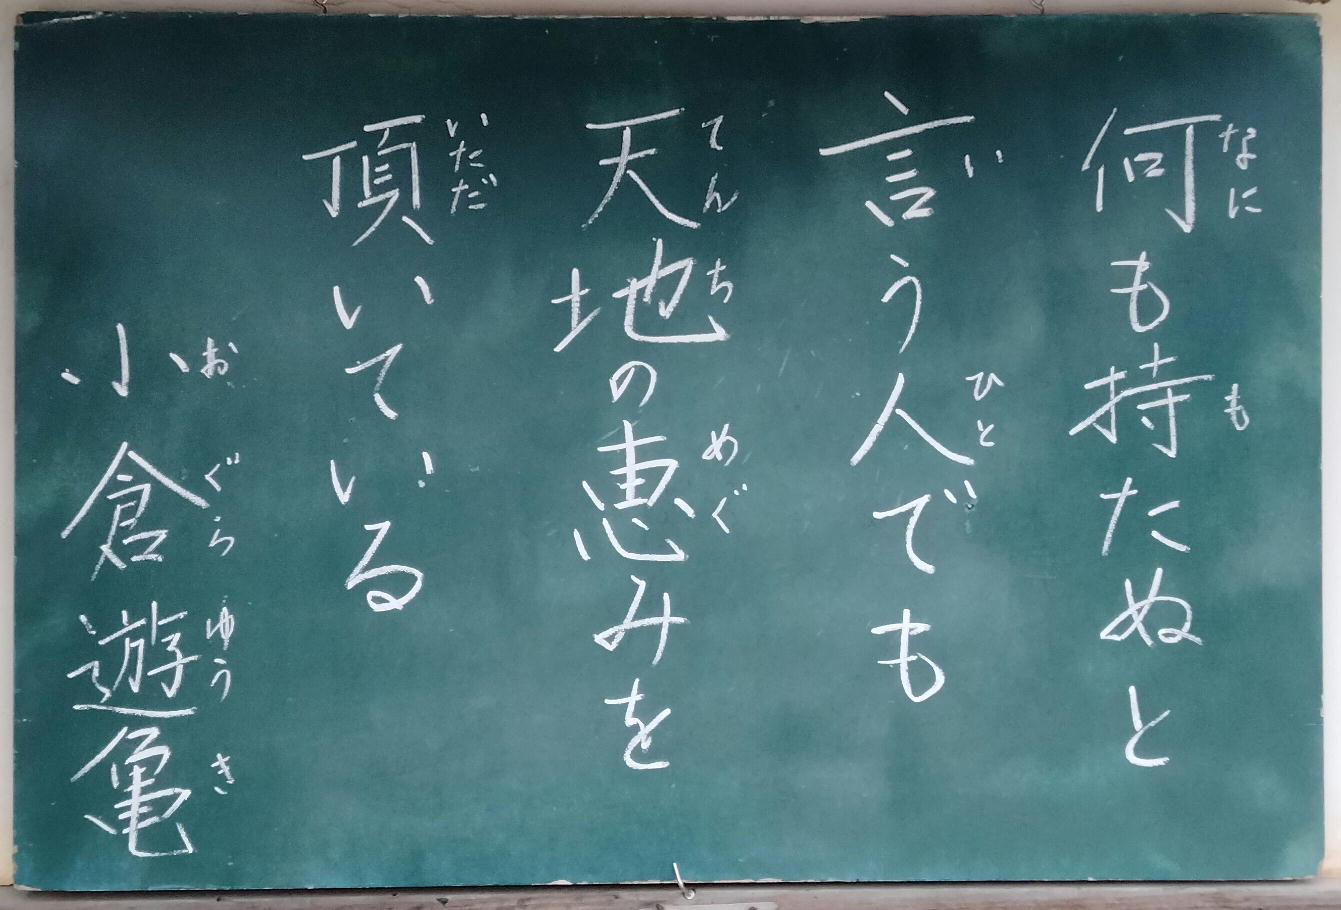 何も持たぬと
なにも
言う人でも
いひと
天地の恵みを
てんちめぐ
頂いている
いただ
小倉遊亀
おぐらゆうき